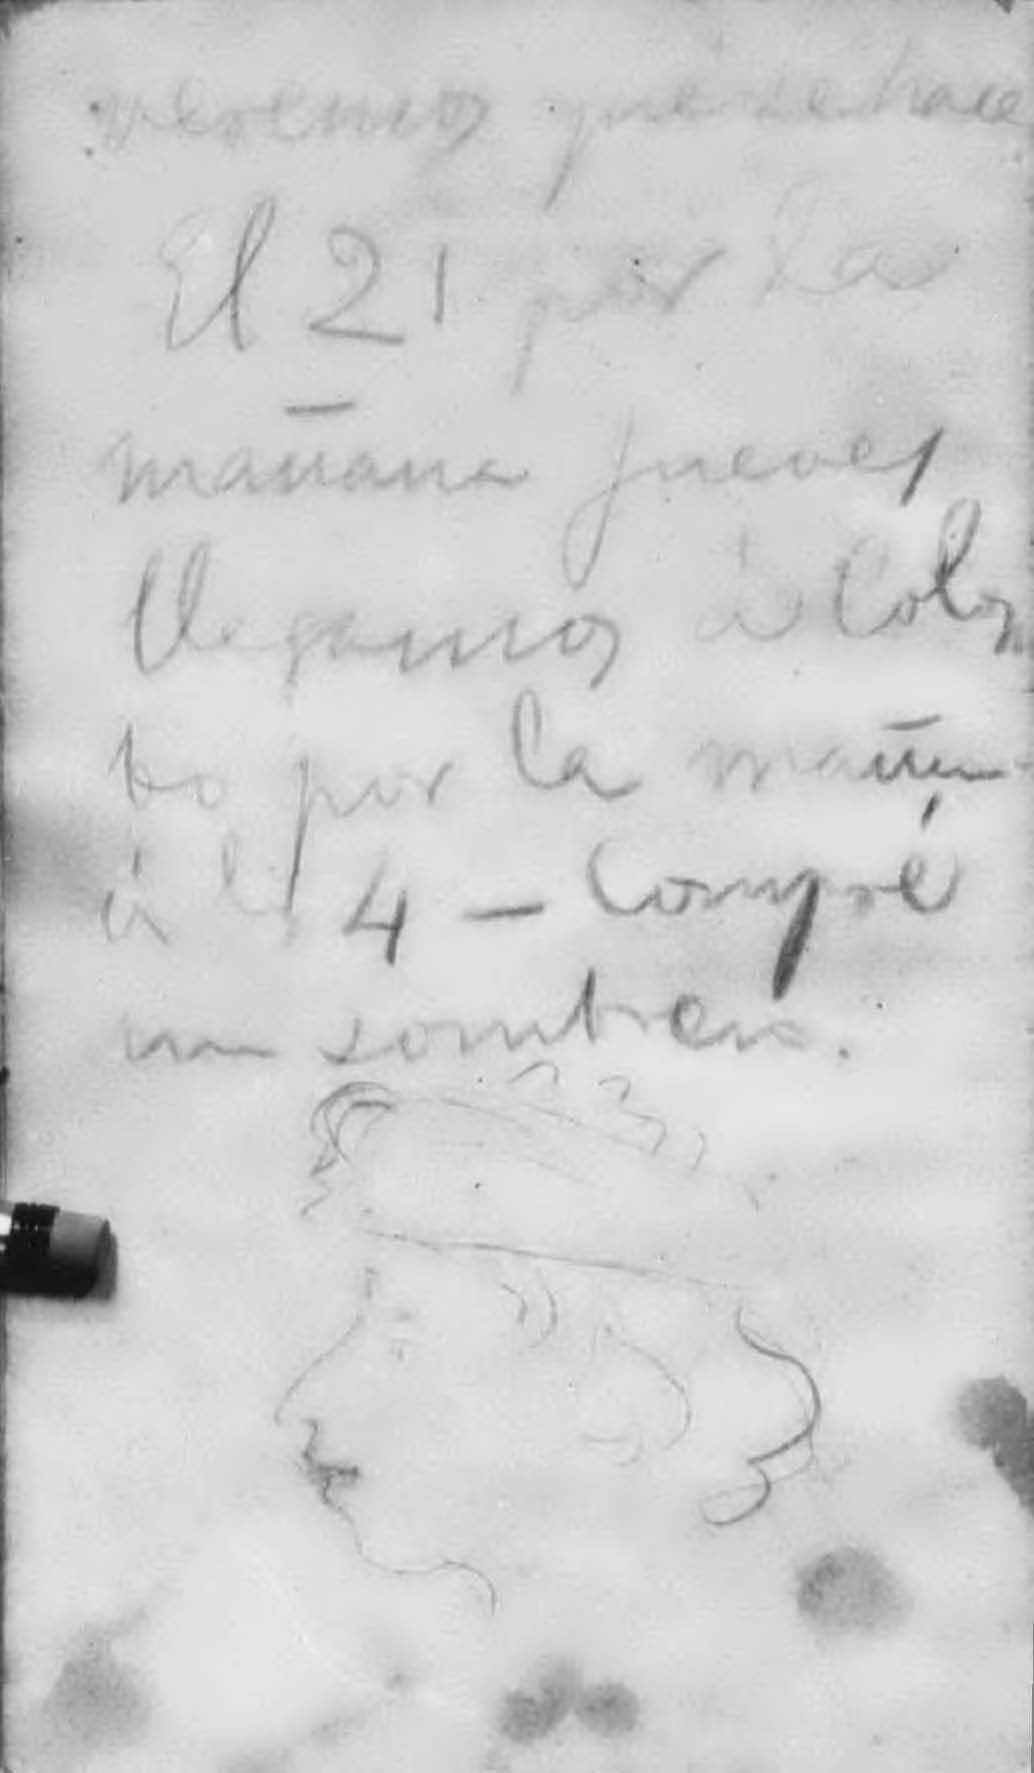 veremos que se hace
El 21 por la
mañana jueves
llegamos á Colom
bo por la mañan
á l 4 – Compré
un sombrero.